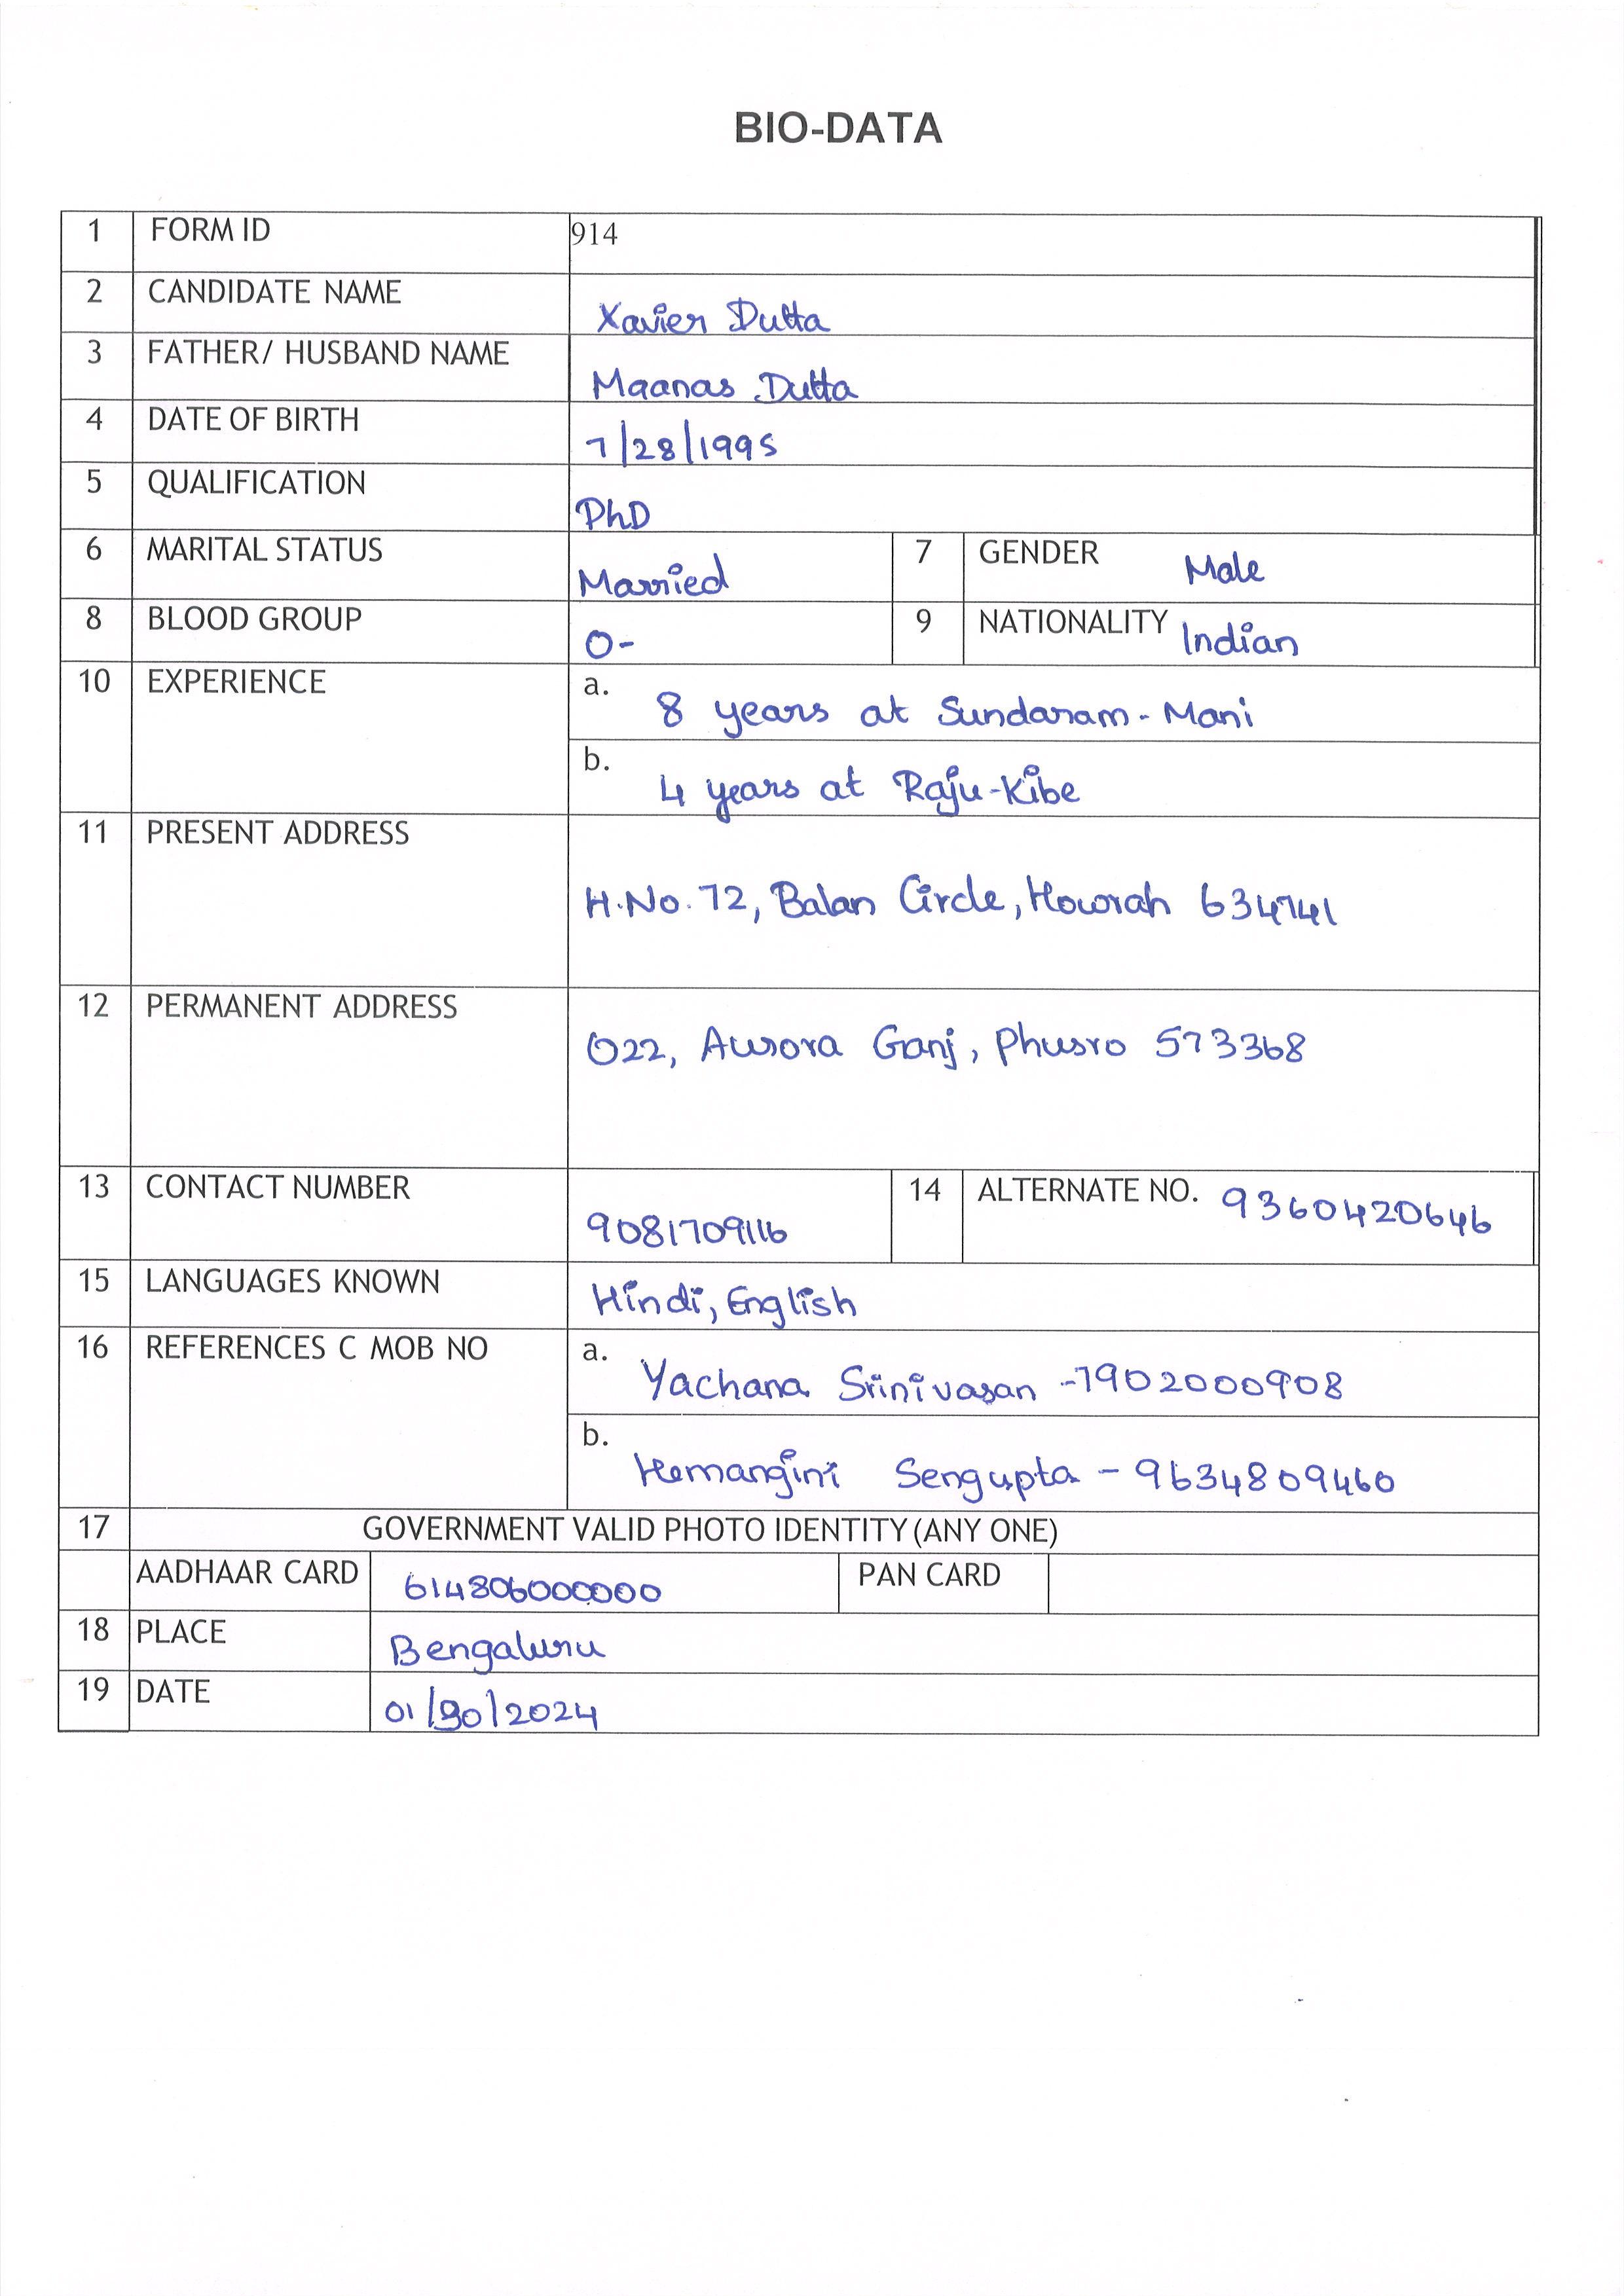 BIO-DATA
1 FORM ID 914
2 CANDIDATE NAME Xavier Dutta
3 FATHER/ HUSBAND NAME Maanas Dutta
4 DATE OF BIRTH 7/28/1995
5 QUALIFICATION PhD
6 MARITAL STATUS Married 7 GENDER Male
8 BLOOD GROUP O- 9 NATIONALITY Indian
10 EXPERIENCE a. 8 years at Sundaram-Mani
b. 4 years at Raju-Kibe
11 PRESENT ADDRESS
H.No. 72, Balan Circle, Howrah 634741
12 PERMANENT ADDRESS
022, Aurora Ganj, Phusro 573368
13 CONTACT NUMBER 9081709116 14 ALTERNATE NO. 9360420646
15 LANGUAGES KNOWN Hindi, English
16 REFERENCES C MOB NO a. Yachana Srinivasan -7902000908
b. Hemangini Sengupta - 9634809460
17 GOVERNMENT VALID PHOTO IDENTITY (ANY ONE)
AADHAAR CARD 614806000000 PAN CARD
18 PLACE Bengaluru
19 DATE 01/30/2024